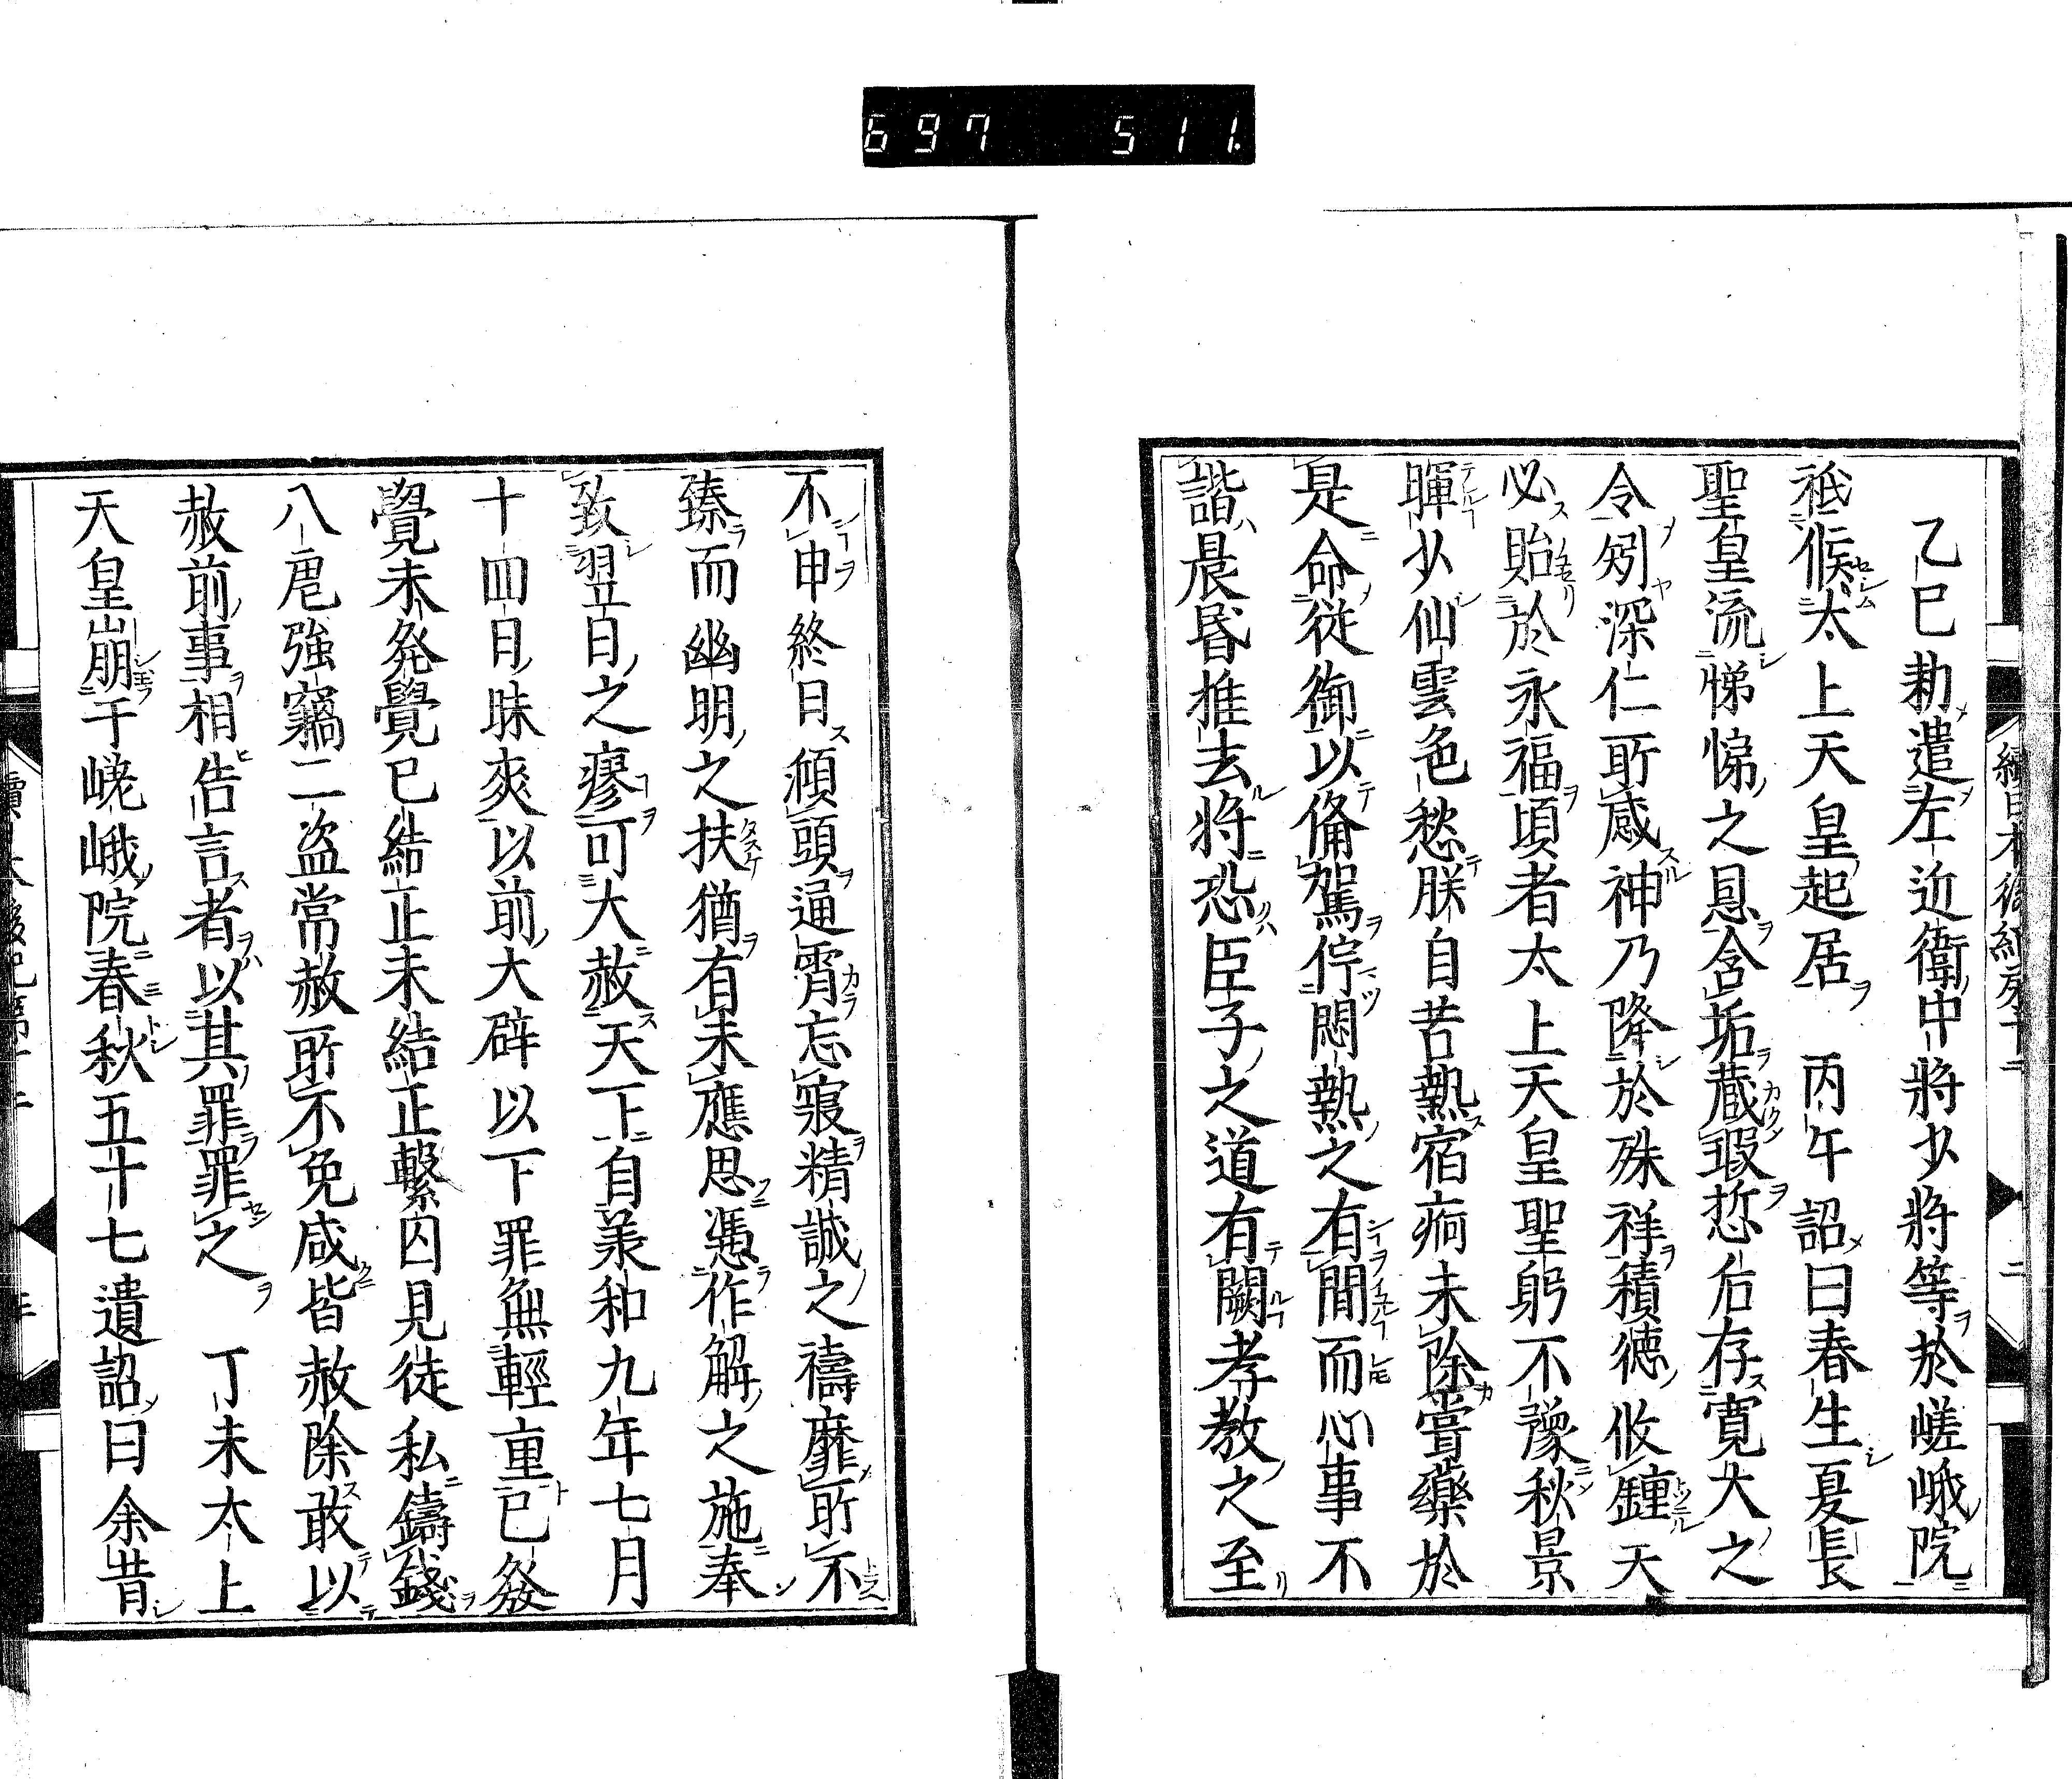 697 511.
乙巳勅遣左近衛中將少將等於嵯峨院
祗候太上天皇起居 丙午詔曰春生夏長
聖皇流悌悌之恩含垢蔵瑕悊后存寛大之
令矧深仁所感神乃降於殊祥積徳攸鍾天
必貽於永福頃者太上天皇聖躬不豫秋景
暉少仙雲色愁朕自苦熱宿痾未除嘗藥於
是命従御以俻駕佇悶熱之有間而心事不
諧晨昏推去将恐臣子之道有闕孝教之至
不申終日傾頭通霄忘寢精誠之禱靡所不
臻而幽明之扶猶有未應思憑作解之施奉
致翌日之瘳可大赦天下自羕和九年七月
十四日昧爽以前大辟以下罪無輕重已發
覺未発覺已結正未結正繋囚見徒私鑄錢
八虐強竊二盗常赦所不免咸皆赦除敢以
赦前事相告言者以其罪罪之 丁未太上
天皇崩于嵯峨院春秋五十七遺詔曰余昔